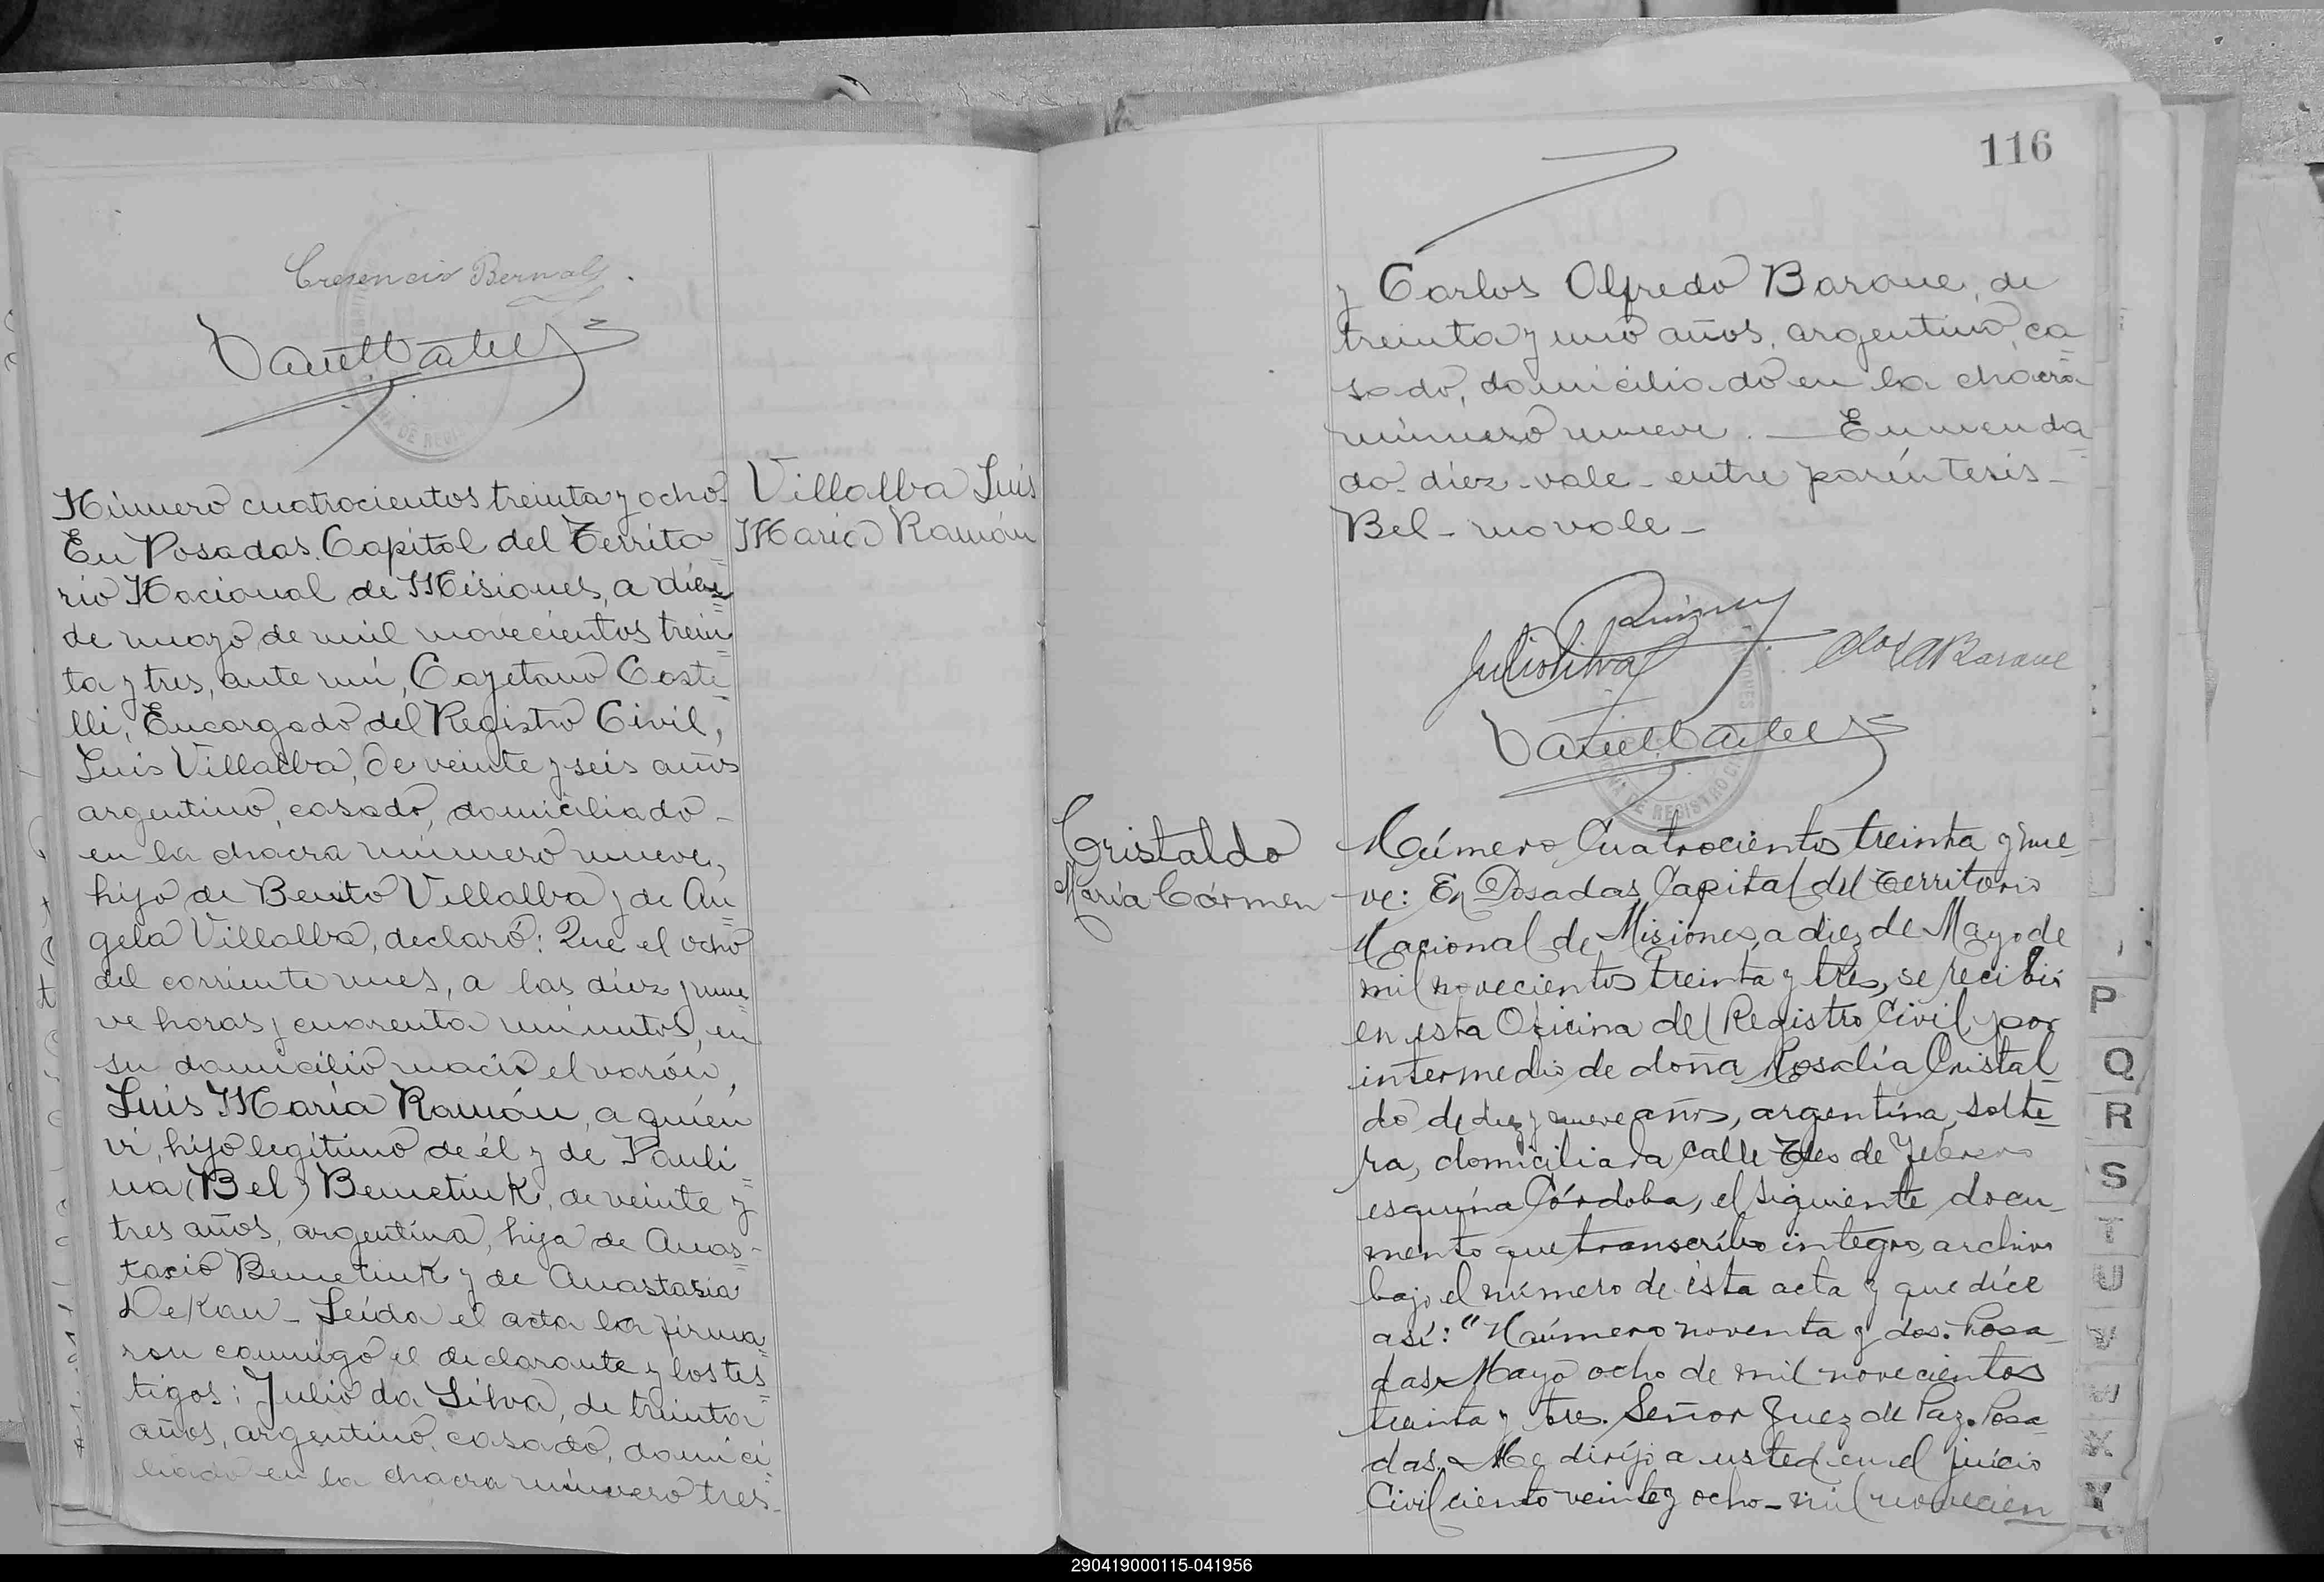 Cresencio Bernal
Número cuatrocientos treinta y ocho.
En Posadas, Capital del Territo
rio Nacional de Misiones, a diez
de mayo de mil novecientos trein
ta y tres, ante mí, Cayetano Caste
lli, Encargado del Registro Civil,
Luis Villalba, de veinte y seis años
argentino, casado, domiciliado
en la chacra número nueve,
hijo de Benito Villalba y de An
gela Villalba, declaró: Que el ocho
del corriente mes, a las diez y nue
ve horas y cuarenta minutos, en
su domicilio nació el varón,
Luis María Ramón, a quien
vi, hijo legítimo de él y de Pauli
na (Bel) Bemetiuk, de veinte y
tres años, argentina, hija de Anas
tacio Bemetiuk y de Anastasia
Dekan - Leída el acta la firma
ron conmigo el declarante y los tes
tigos: Julio da Silva, de treinta
años, argentino, casado, domici
liado en la chacra número tres
Villalba Luis
María Ramón
116
y Carlos Alfredo Baraue, de
treinta y uno años, argentino, ca
sado, domiciliado en la chacra
número nueve. — Enmenda
do - diez - vale - entre paréntesis -
Bel - no vale -
Julio Silva
Clos A Baraue
DE REGISTRO CI
Cristaldo
María Cármen
Número Cuatrocientos treinta y nue
ve: En Posadas, Capital del Territorio
Nacional de Misiones, a diez de Mayo de
mil novecientos treinta y tres, se recibió
en esta Oficina del Registro Civil, por
intermedio de doña Rosalía Cristal
do de diez y nueve años, argentina, solte
ra, domiciliada calle Tres de Febrero
esquina Córdoba, el siguiente docu
mento que transcribo integro, archivo
bajo el número de ésta acta y que díce
así: "Número noventa y dos. Posa
das, Mayo ocho de mil novecientos
treinta y tres. Señor Juez de Paz. Posa
das. Me dirijo a usted en el juicio
Civil ciento veinte y ocho - mil novecien
P
Q
R
S
T
U
V
W
X
Y
290419000115-041956